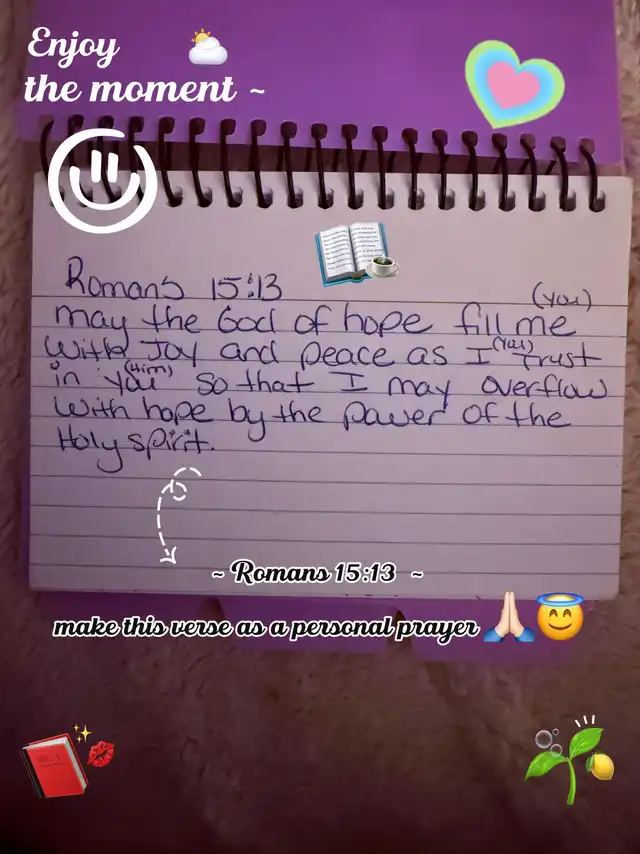 Enjoy
the moment ~
Romans 15:13
(you)
may the God of hope fill me
(You)
with Joy and peace as I Trust
(Him)
in you so that I may overflow
with hope by the power of the
Holy spirit.
~ Romans 15:13 ~
make this verse as a personal prayer